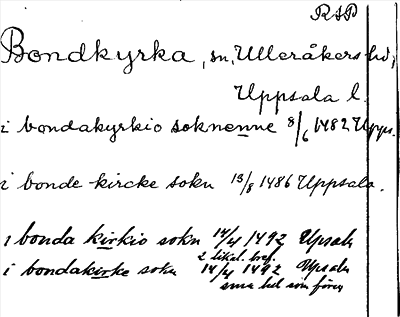 RSP
Bondkyrka, sn, Ulleråkers hd,
Uppsala l.
i bondakyrkio soknenne 8/6 1482 Upps.
i bonde kircke sokn 13/8 1486 Uppsala.
i bonda kirkio sokn 14/4 1492 Upsala
2 likal. bref.
i bondakirke sokn 14/4 1492 Upsala
som